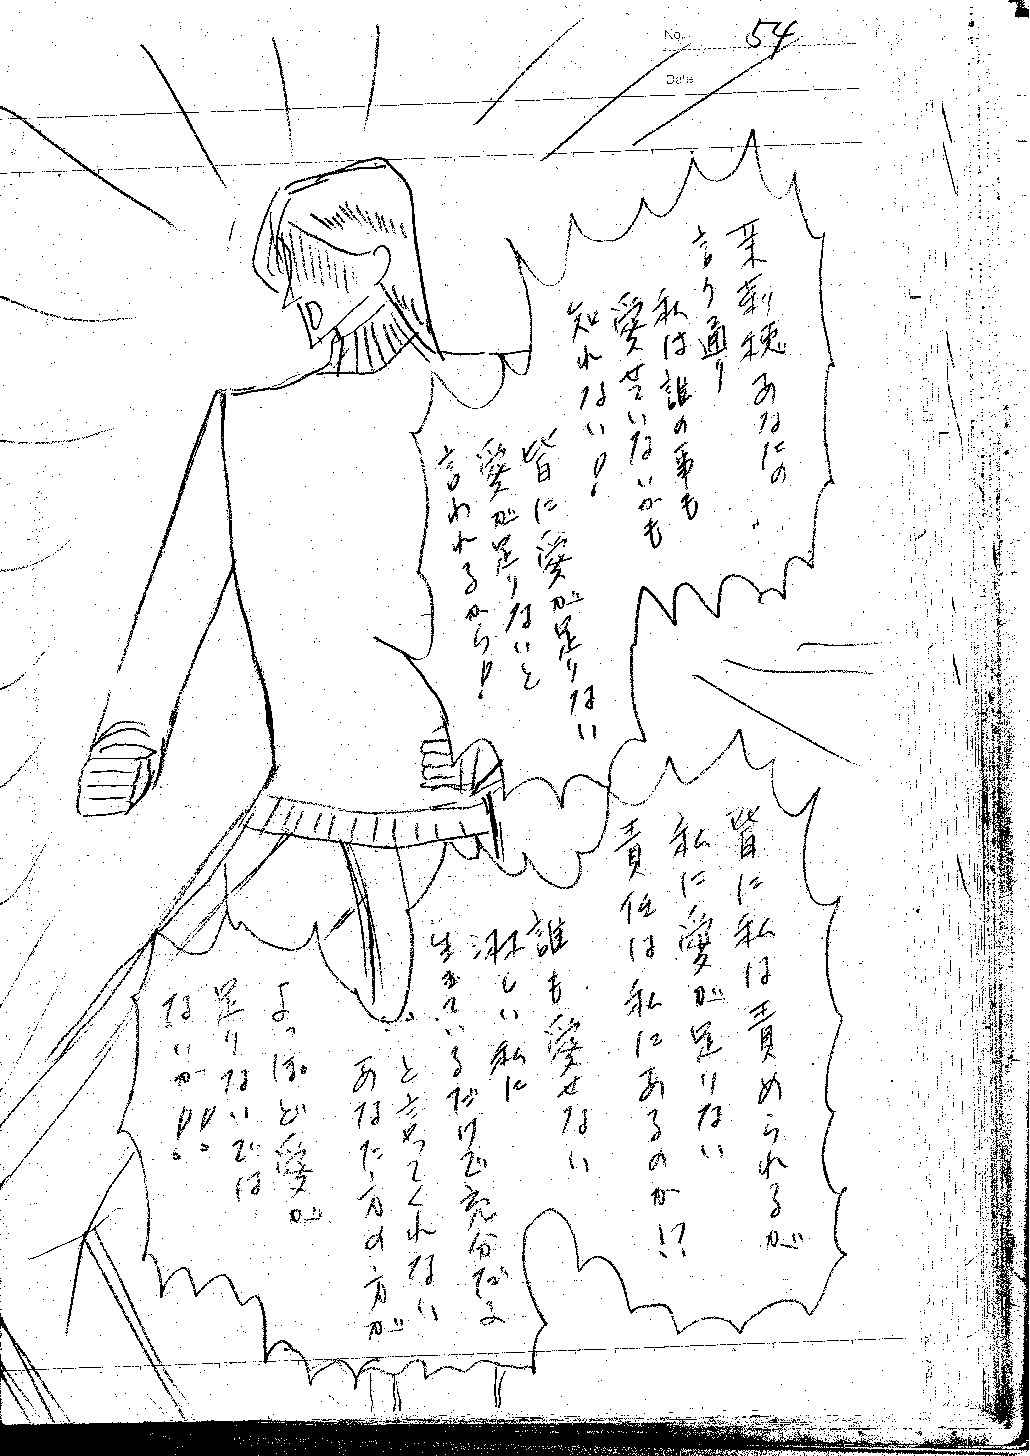 No. 54
Date
茉莉穂あなたの
言う通り
私は誰の事も
愛せいないかも
知れない!
皆に愛が足りない
愛が足りないと
言われるから!
皆に私は責められるが
私に愛が足りない
責任は私にあるのか!?
誰も愛せない
淋しい私に
生きているだけで充分だよ
と言ってくれない
あなた方の方が
よっぽど愛が
足りないでは
ないか!!